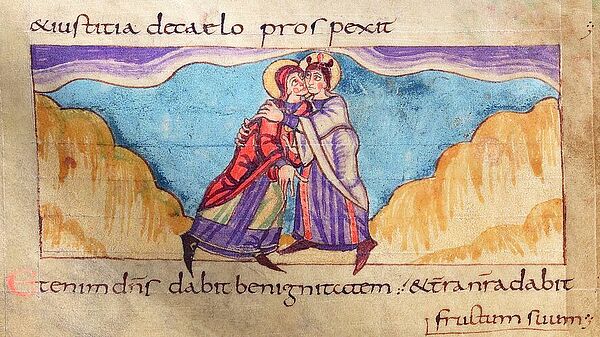 &iustitia decaelo prospexit
Etenim dn̄s dabit benignitatem :· & t̄ra nr̄a dabit
fructum suum :·